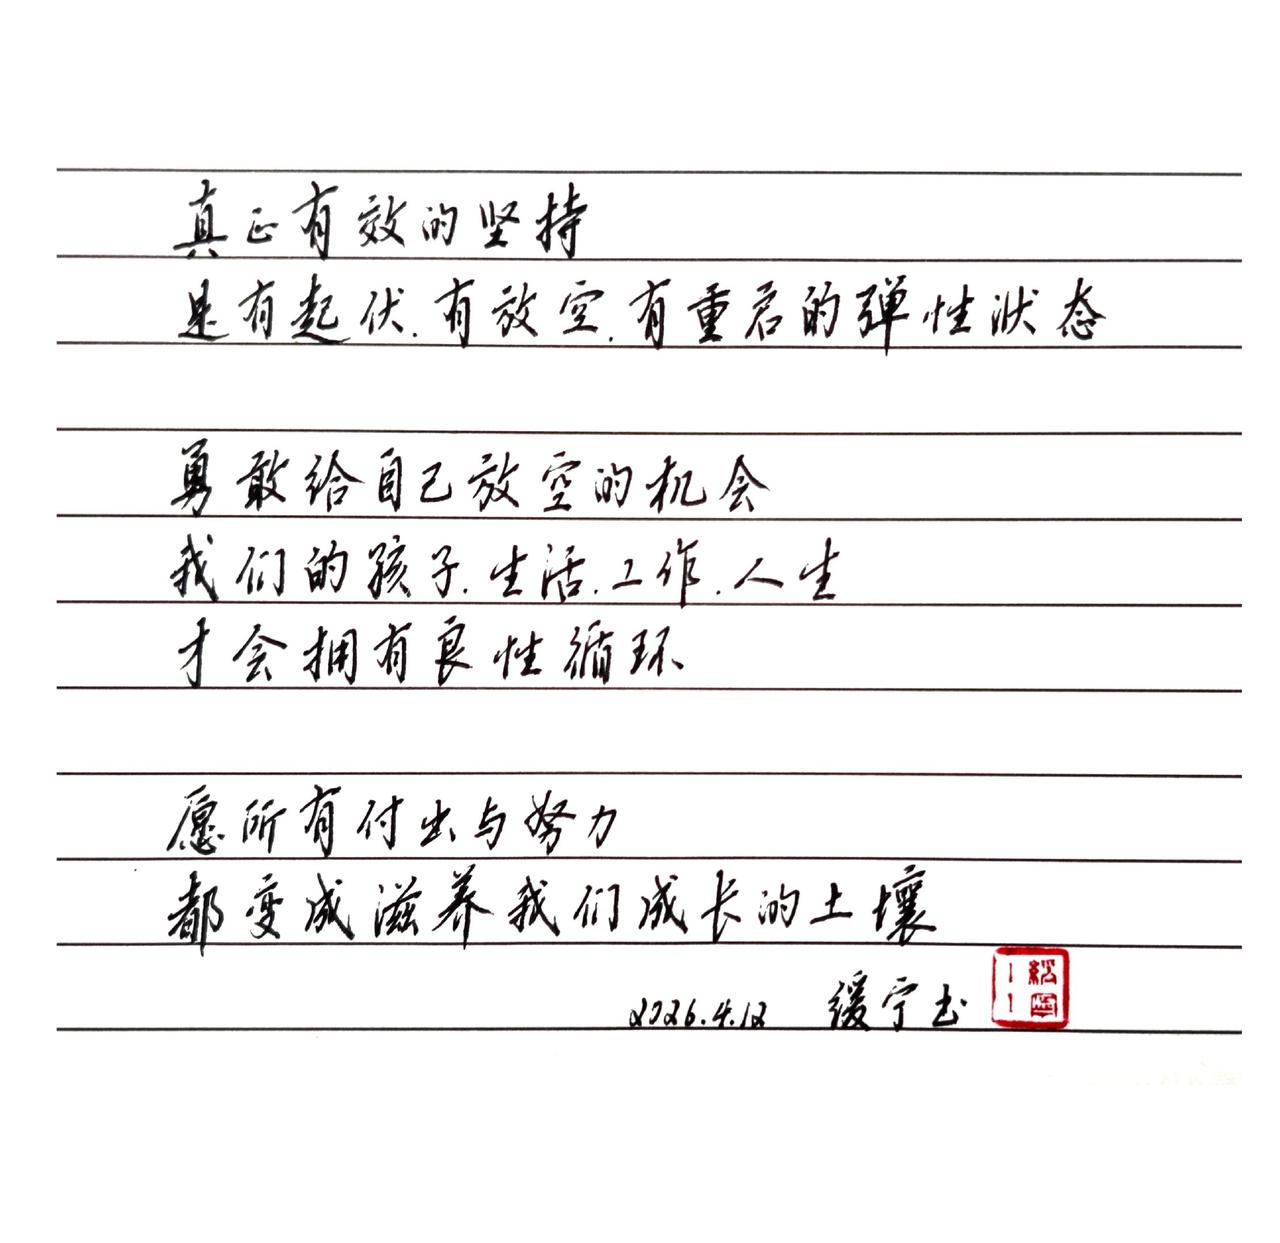 真正有效的坚持
是有起伏.有放空.有重启的弹性状态
勇敢给自己放空的机会
我们的孩子.生活.工作.人生
才会拥有良性循环
愿所有付出与努力
都变成滋养我们成长的土壤
2026.4.12 缓宁书